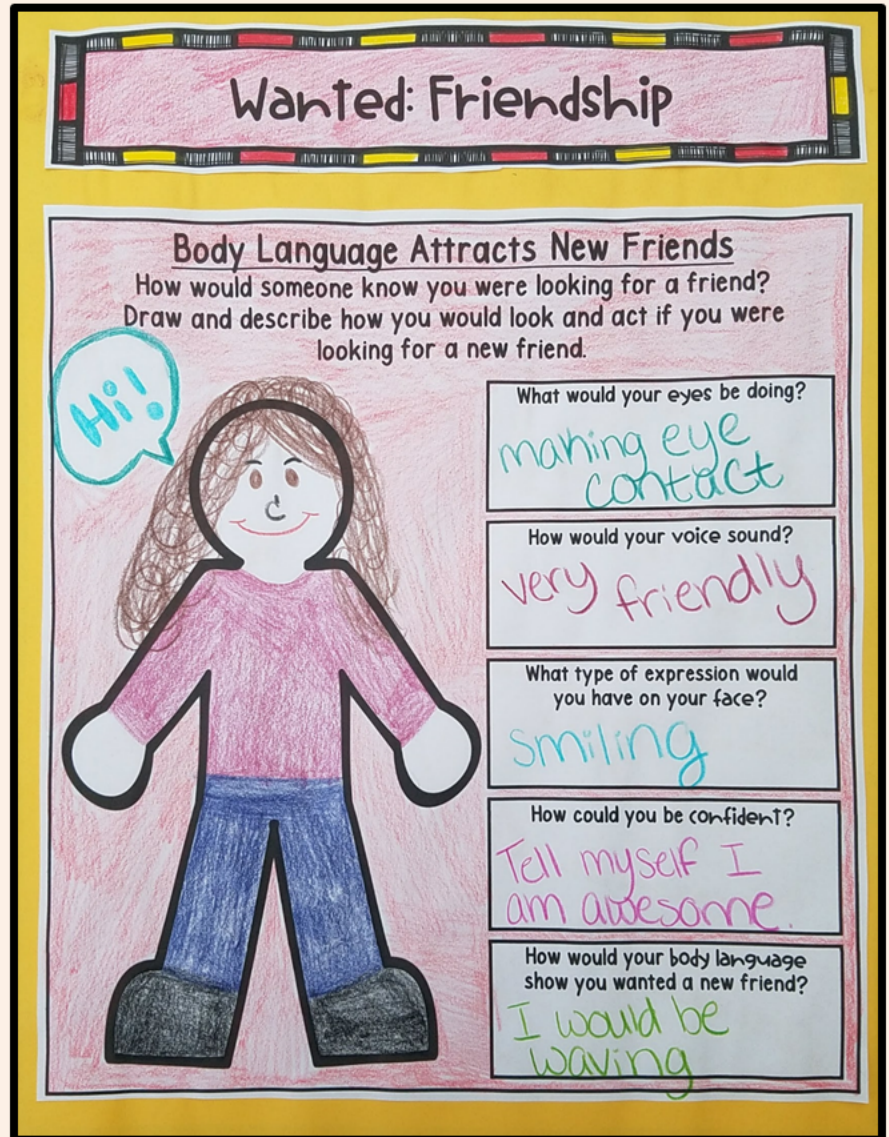 Wanted: Friendship
Body Language Attracts New Friends
How would someone know you were looking for a friend?
Draw and describe how you would look and act if you were
looking for a new friend.
Hi!
What would your eyes be doing?
making eye
contact
How would your voice sound?
very friendly
What type of expression would
you have on your face?
smiling
How could you be confident?
Tell myself I
am awesome.
How would your body language
show you wanted a new friend?
I would be
waving